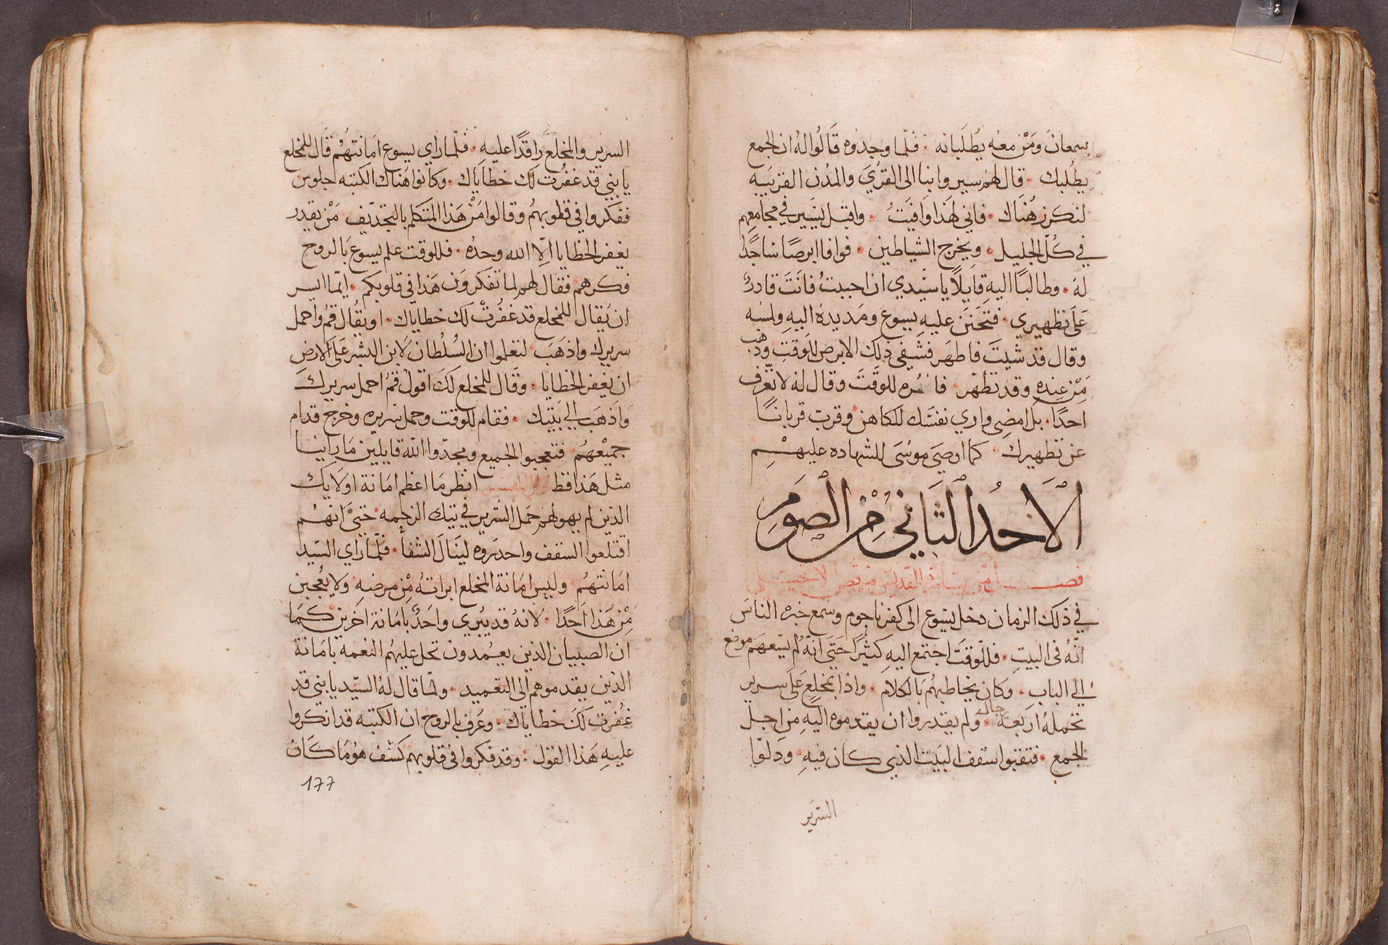 سمعان ومَنْ معه يطلبانه · فلما وجدوه قالوا له ان الجمع
يطلبك · قال لهم سيروا بنا الى القرى والمدن القريبه
لنكرز هناك · فاني لهذا وافيتُ · واقبل يسير في مجامعهم
في كل الجليل · ويخرج الشياطين · فوافا ابرصًا ساجدًا
له · وطالبًا اليه قايلًا يا سيدي ان احببت فانتَ قادرٌ
على تطهيري · فتحنن عليه يسوع ومد يده اليه ولمسه
وقال قد شيت فاطهر فشفى ذلك الابرص للوقت وذهب
مَنْ عنده وقد تطهّر · للوقت وقال له لا تعرف
احدًا · بل امضي واري نفسَك للكاهن وقرب قربانًا
عن تطهيرك · كما اوصى موسَى للشهاده عليهم
الاحد الثاني من الصوم
فصل من بشارة القديس مرقس الانجيلي
في ذلك الزمان دخل يسوع الى كفرناحوم وسمع خبره الناس
انّه في البيتِ · فللوقت اجتمع اليهِ كثيرًا حتى انهُ لم يسعهم موضع
الى الباب · وكان يخاطبهُم بالكلام · واذا بمخلعٍ على سرير
تحمله اربعة رجال · ولم يقدروا ان يقدموه اليه من اجل
الجمع · فنقبوا سقف البيت الذي كان فيهِ · ودلّوا
السرير
السرير والمخلع راقدًا عليهِ · فلما راي يسوع امانتهُم قال للمخلع
يا بني قد غفرت لك خطاياك · وكانوا هناك الكتبه اجلوس
ففكروا في قلوبهم وقالوا مَنْ هذا المتكلم بالتجديف مَنْ يقدر
يغفر الخطايا الا الله وحدُه · فللوقت علم يسوع بالروح
فكرهم فقال لهم لما تفكرون هذا في قلوبكم · ايما ايسر
ان يُقال للمخلع قد غفرت لك خطاياك · او يقال قُم واحمل
سريرك واذهَبَ · لتعلموا ان السُلطان لابن البشر على الارض
ان يغفر الخطايا · وقال للمخلع لك اقول قُم احمل سريرك
واذهب الى بيتك · فقام للوقت وحمل سريره وخرج قدام
جميعهُم · فتعجبوا الجميع ومجدّوا الله قايلين ما راينا
مثل هذا قط انظر ما اعظم امانة اولايك
الذين لم يهولهم حمل السرير في تيك الزحمه · حتى انهُم
اقتلعوا السقف واحدروه لينال الشفاء · فلما راي السيد
امانتهُم · وليس امانة المخلع ابراتهُ مْن مرضهِ · ولا يعجبن
مْن هذا احدًا · لانهُ قد يبري واحدٌ بامانة اخرين · كما
ان الصبيان الذين يعتمدون تحل عليهم النعمه بامانة
الذين يقدموهم الى التعميد · ولما قال لهُ السيد يا بني قد
غُفرت لكَ خطاياك · وعَرف بالروح ان الكتبه قد انكروا
عليهِ هذا القول · وقد فكروا في قلوبهم كشف هو ما كان
177